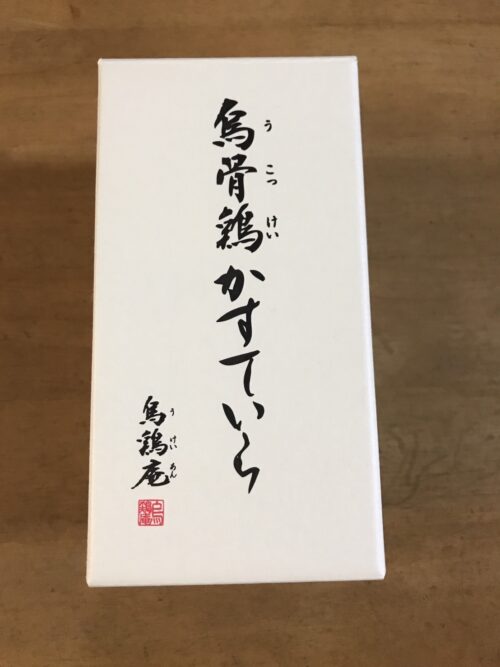 烏骨鶏かすていら
うこっけい
烏鶏庵
うけいあん
烏鶏庵